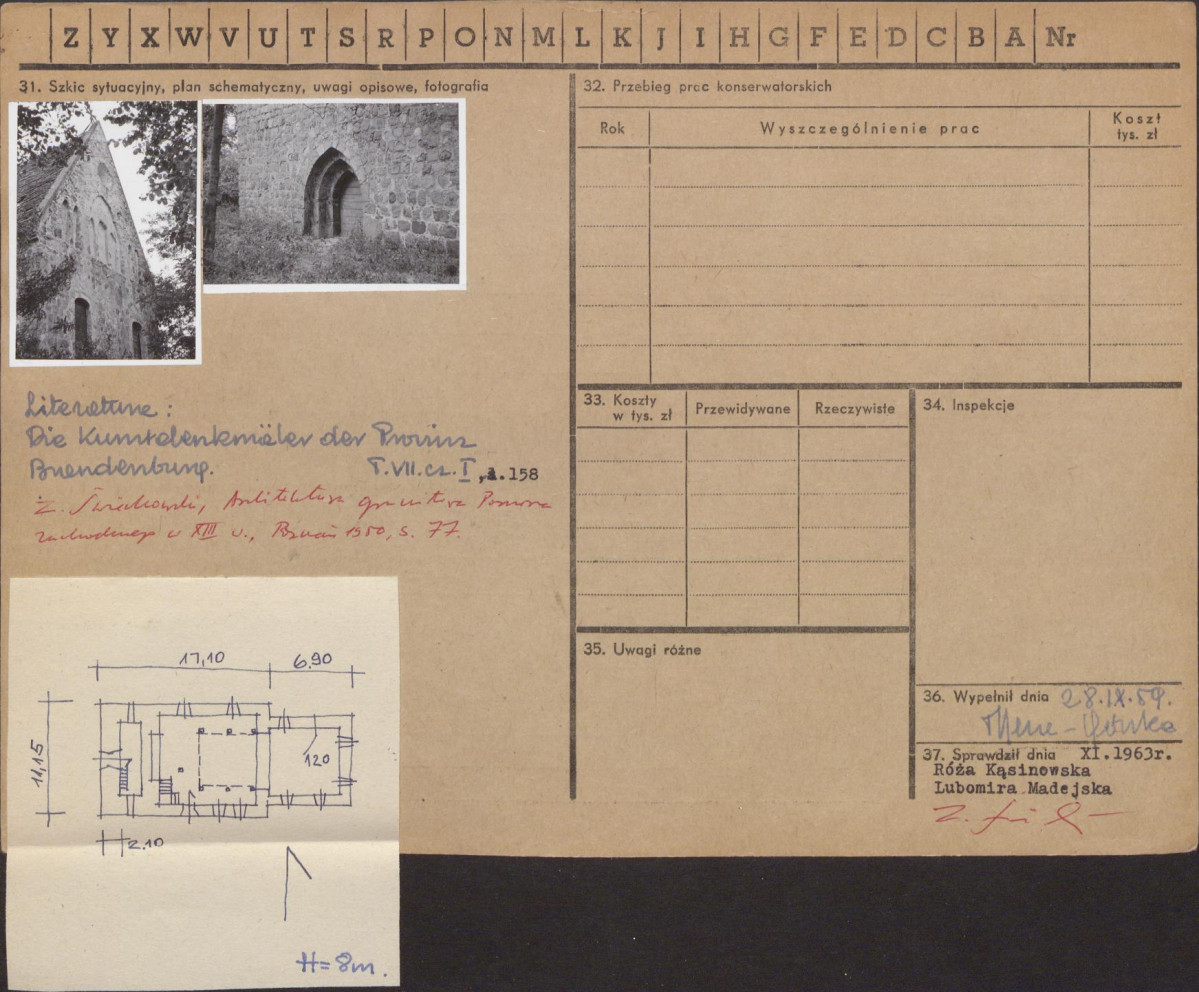 Z Y X W V U T S R P O N M L K J I H G F E D C B A Nr
31. Szkic sytuacyjny, plan schematyczny, uwagi opisowe, fotografia
Literatura:
Die Kunstdenkmäler der Provinz
Brandenburg. T.VII.cz.I, s.158
Z. Świechowski, Architektura granitowa Pomorza
zachodniego w XIII w., Poznań 1950, s. 77.
17,10 6,90
11,15
120
2.10
H=8m.
32. Przebieg prac konserwatorskich
Rok Wyszczególnienie prac Koszt tys. zł
33. Koszty w tys. zł Przewidywane Rzeczywiste
34. Inspekcje
35. Uwagi różne
36. Wypełnił dnia 28.IX.59.
37. Sprawdził dnia XI.1963r.
Róża Kąsinowska
Lubomira Madejska